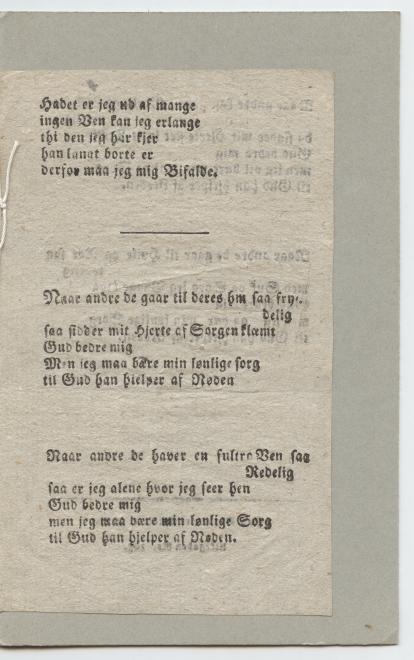 Hadet er jeg ud af mange
ingen Ven kan jeg erlange
thi den jeg har kjer
han langt borte er
derfor maa jeg mig Bifalde.
Naar andre de gaar til deres hm saa fry-
delig
saa sidder mit Hjerte af Sorgen klæmt
Gud bedre mig
Men jeg maa bære min lønlige sorg
til Gud han hjelper af Nøden
Naar andre de haver en fultro Ven saa
Redelig
saa er jeg alene hvor jeg seer hen
Gud bedre mig
men jeg maa bære min lønlige Sorg
til Gud han hjelper af Nøden.